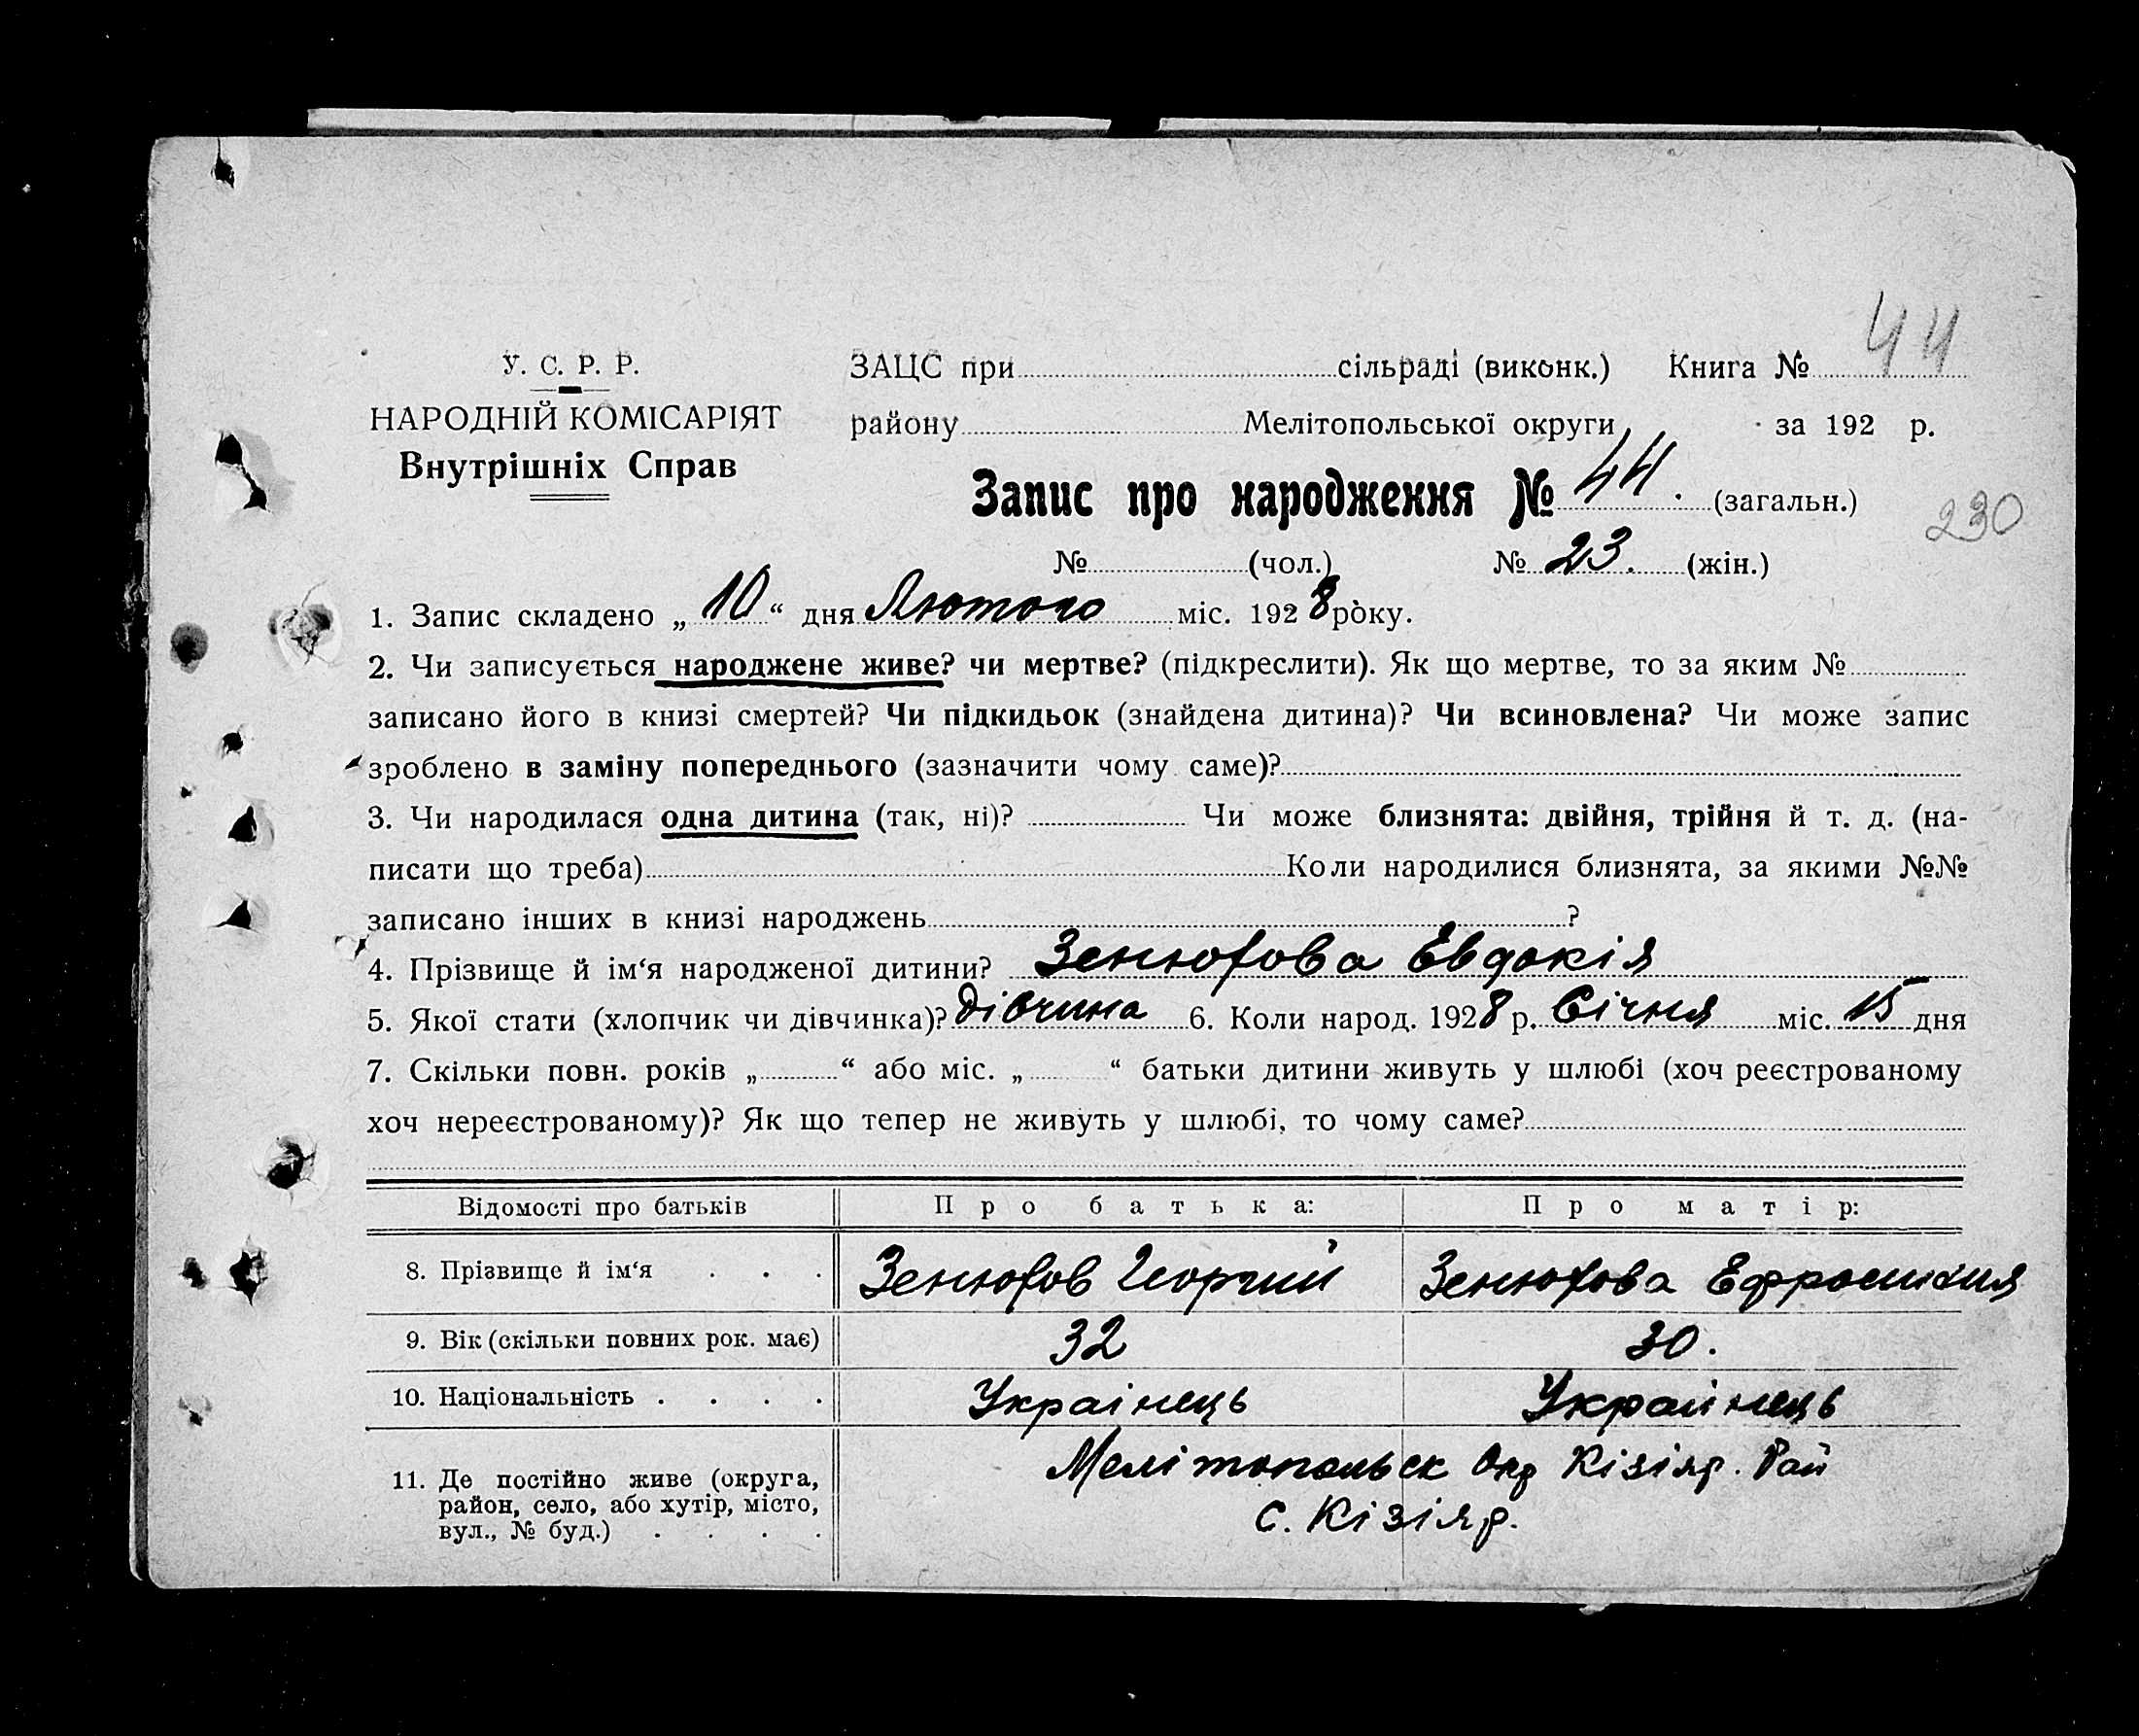 44
У. С. Р. Р.
НАРОДНІЙ КОМІСАРІЯТ
Внутрішніх Справ
ЗАЦС при сільраді (виконк.) Книга №
району Мелітопольської округи за 192 р.
Запис про народження № 44. (загальн.)
230
№ (чол.) № 23. (жін.)
1. Запис складено „10“ дня Лютого міс. 1928 року.
2. Чи записується народжене живе? чи мертве? (підкреслити). Як що мертве, то за яким №
записано його в книзі смертей? Чи підкидьок (знайдена дитина)? Чи всиновлена? Чи може запис
зроблено в заміну попереднього (зазначити чому саме)?
3. Чи народилася одна дитина (так, ні)? Чи може близнята: двійня, трійня й т. д. (на-
писати що треба) Коли народилися близнята, за якими №№
записано інших в книзі народжень ?
4. Прізвище й ім‘я народженої дитини? Зенюхова Евдокія
5. Якої стати (хлопчик чи дівчинка)? Дівчина 6. Коли народ. 1928 р. Січня міс. 15 дня
7. Скільки повн. років „ “ або міс. „ “ батьки дитини живуть у шлюбі (хоч реєстрованому
хоч нереєстрованому)? Як що тепер не живуть у шлюбі, то чому саме?
Відомості про батьків Про батька: Про матір:
8. Прізвище й ім‘я . . . Зенюхов Георгий Зенюхова Ефросиния
9. Вік (скільки повних рок. має) 32 30.
10. Національність . . . . Украінець Украинець
11. Де постійно живе (округа,
район, село, або хутір, місто,
вул., № буд.) . . . .
Мелітопольск Окр Кізіяр. Рай
с. Кізіяр.